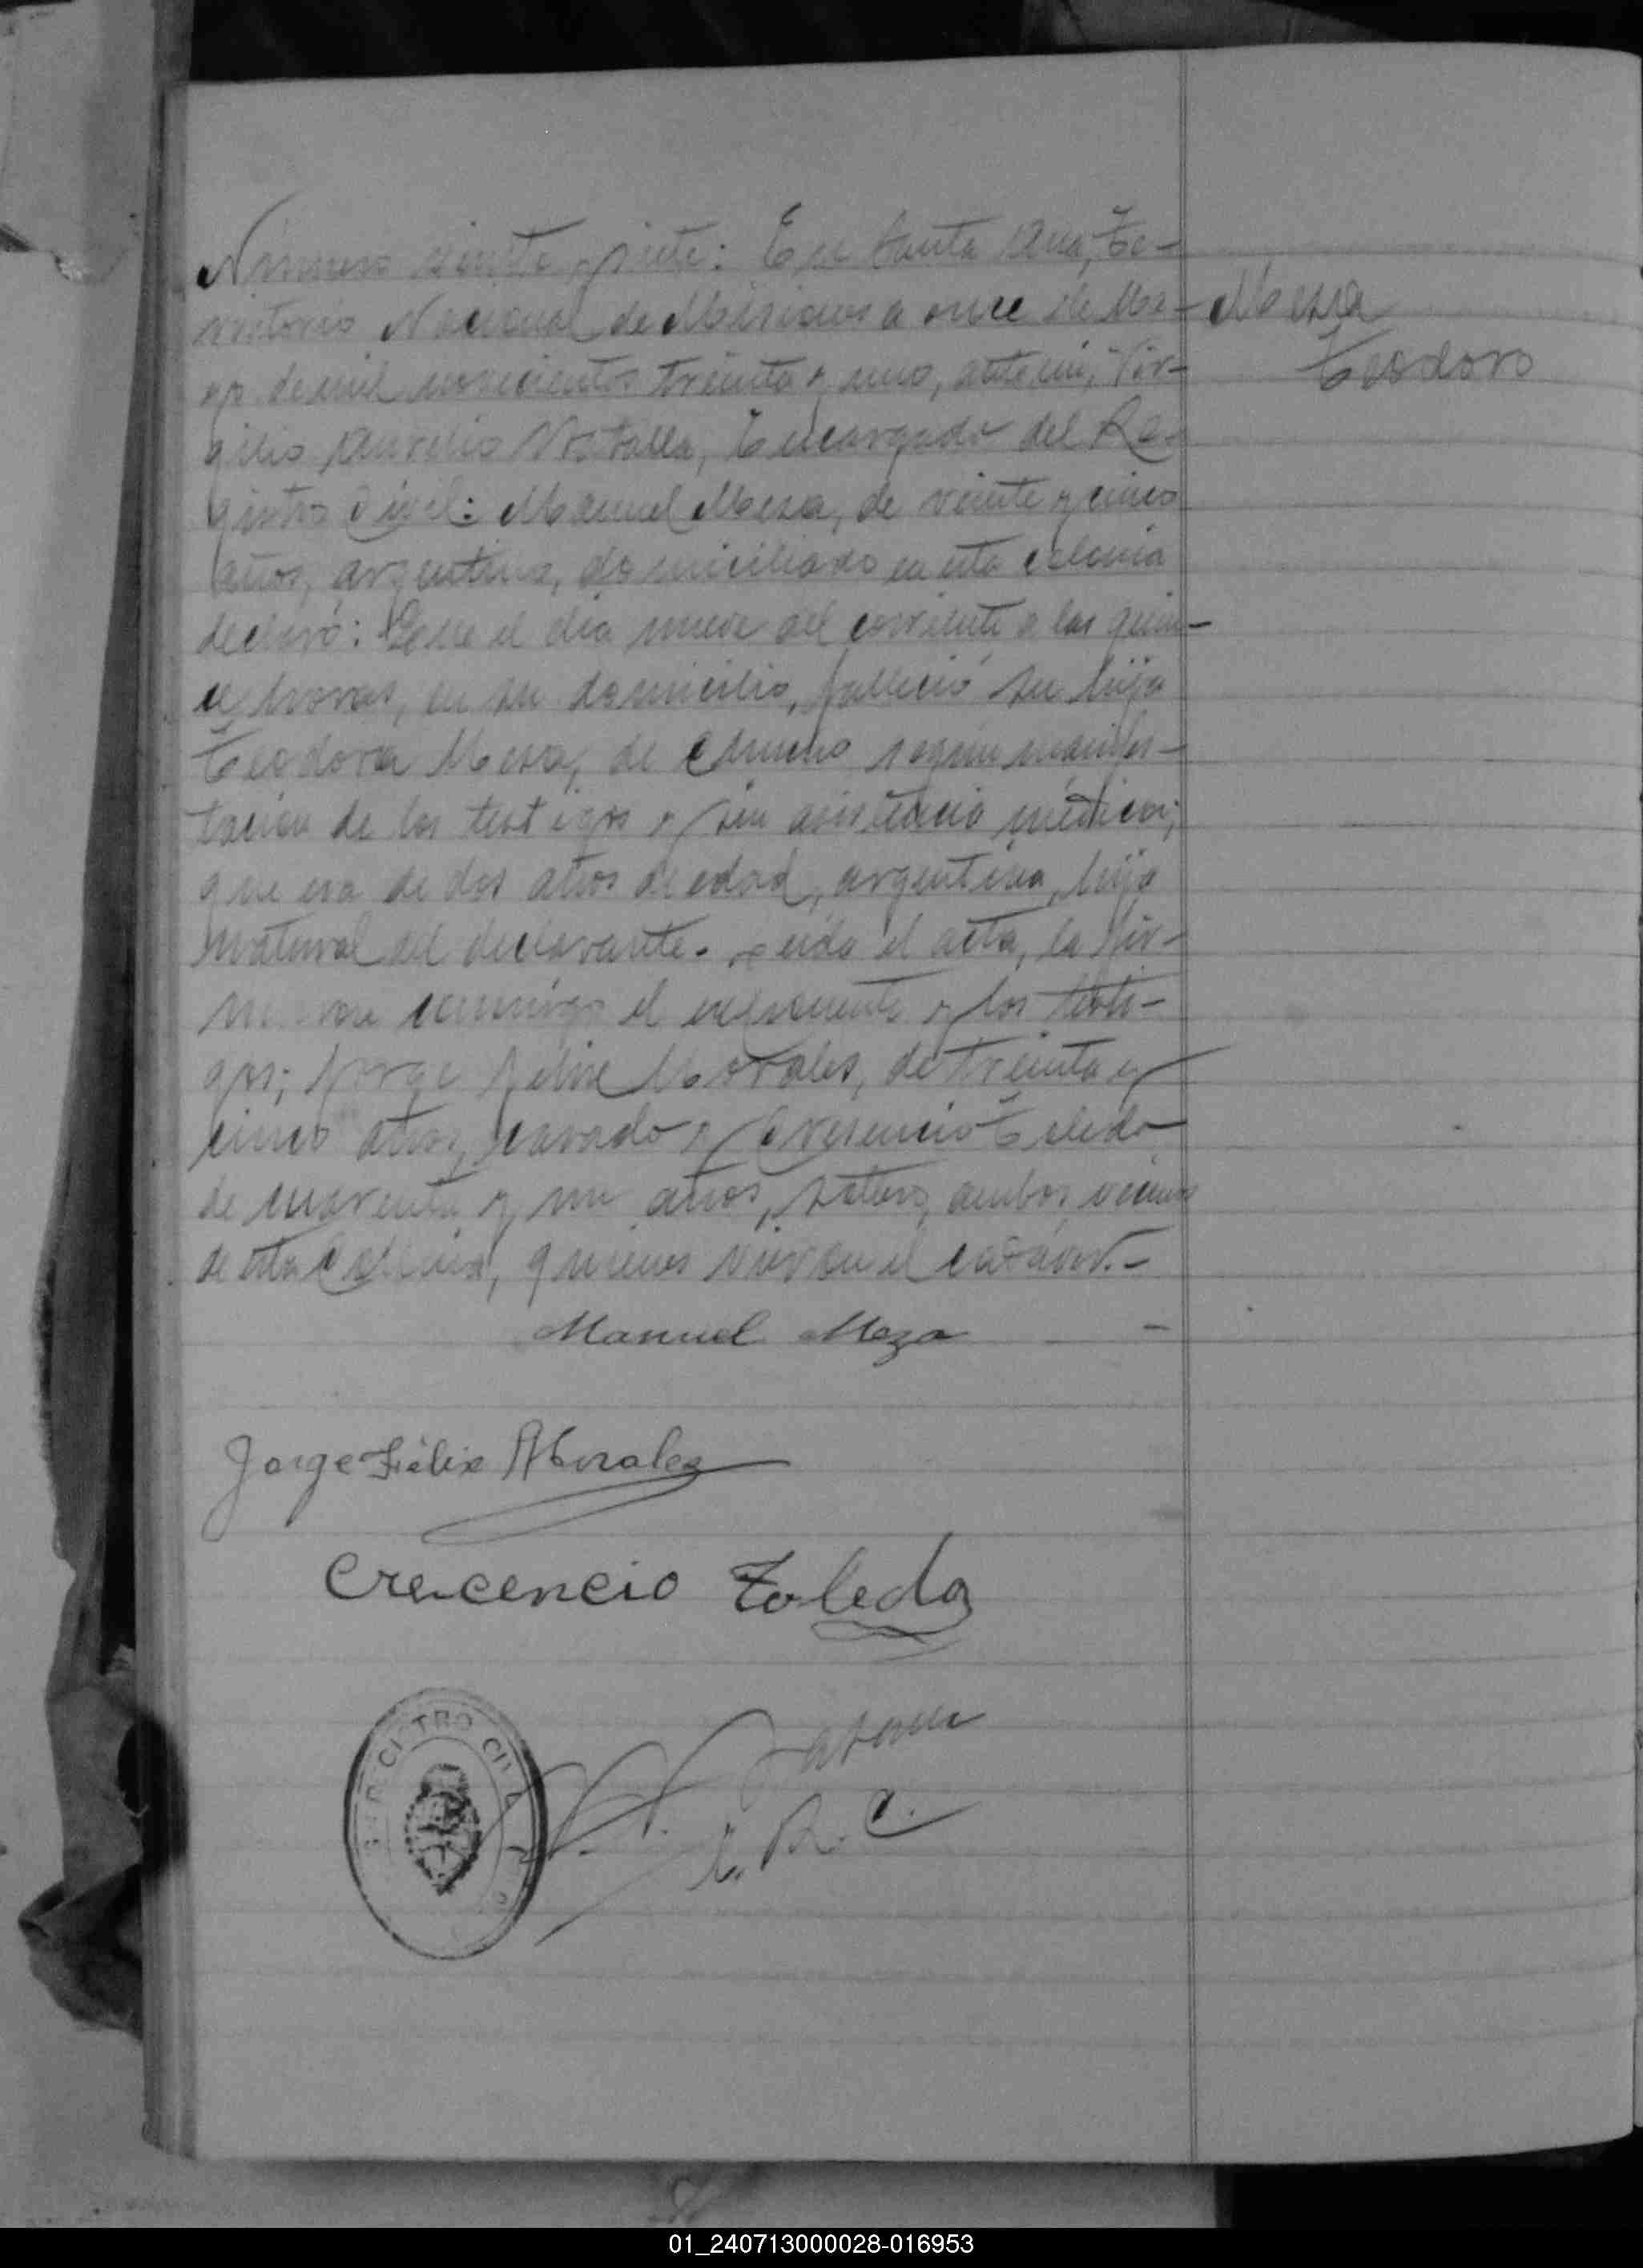 Número veinte y siete: En Santa Ana, Te-
rritorio Nacional de Misiones a once de Ma-
yo de mil novecientos treinta y uno, ante mi, Vir-
gilio Aurelio Encargado del Re-
gistro Civil: Manuel Meza, de veinte y cinco
años, argentino, domiciliado en esta colonia
declaró: Que el dia nueve del corriente a las quin-
ce horas, en su domicilio, falleció su hija
Teodora Meza, de según manifes-
tación de los testigos y sin asistencia médica;
que era de dos años de edad, argentina, hija
natural del declarante. Leida el acta, la fir-
maron conmigo el exponente y los testi-
gos; Jorge Félix Morales, de treinta y
cinco años, casado y Cresencio Toledo
de cuarenta y un años, soltero, ambos vecinos
de esta Colonia, quienes vieron el cadáver.-
Meza
Teodoro
Manuel Meza
Jorge Félix Morales
Crecencio Toledo
REGISTRO CIVIL
E. R. C.
01_240713000028-016953